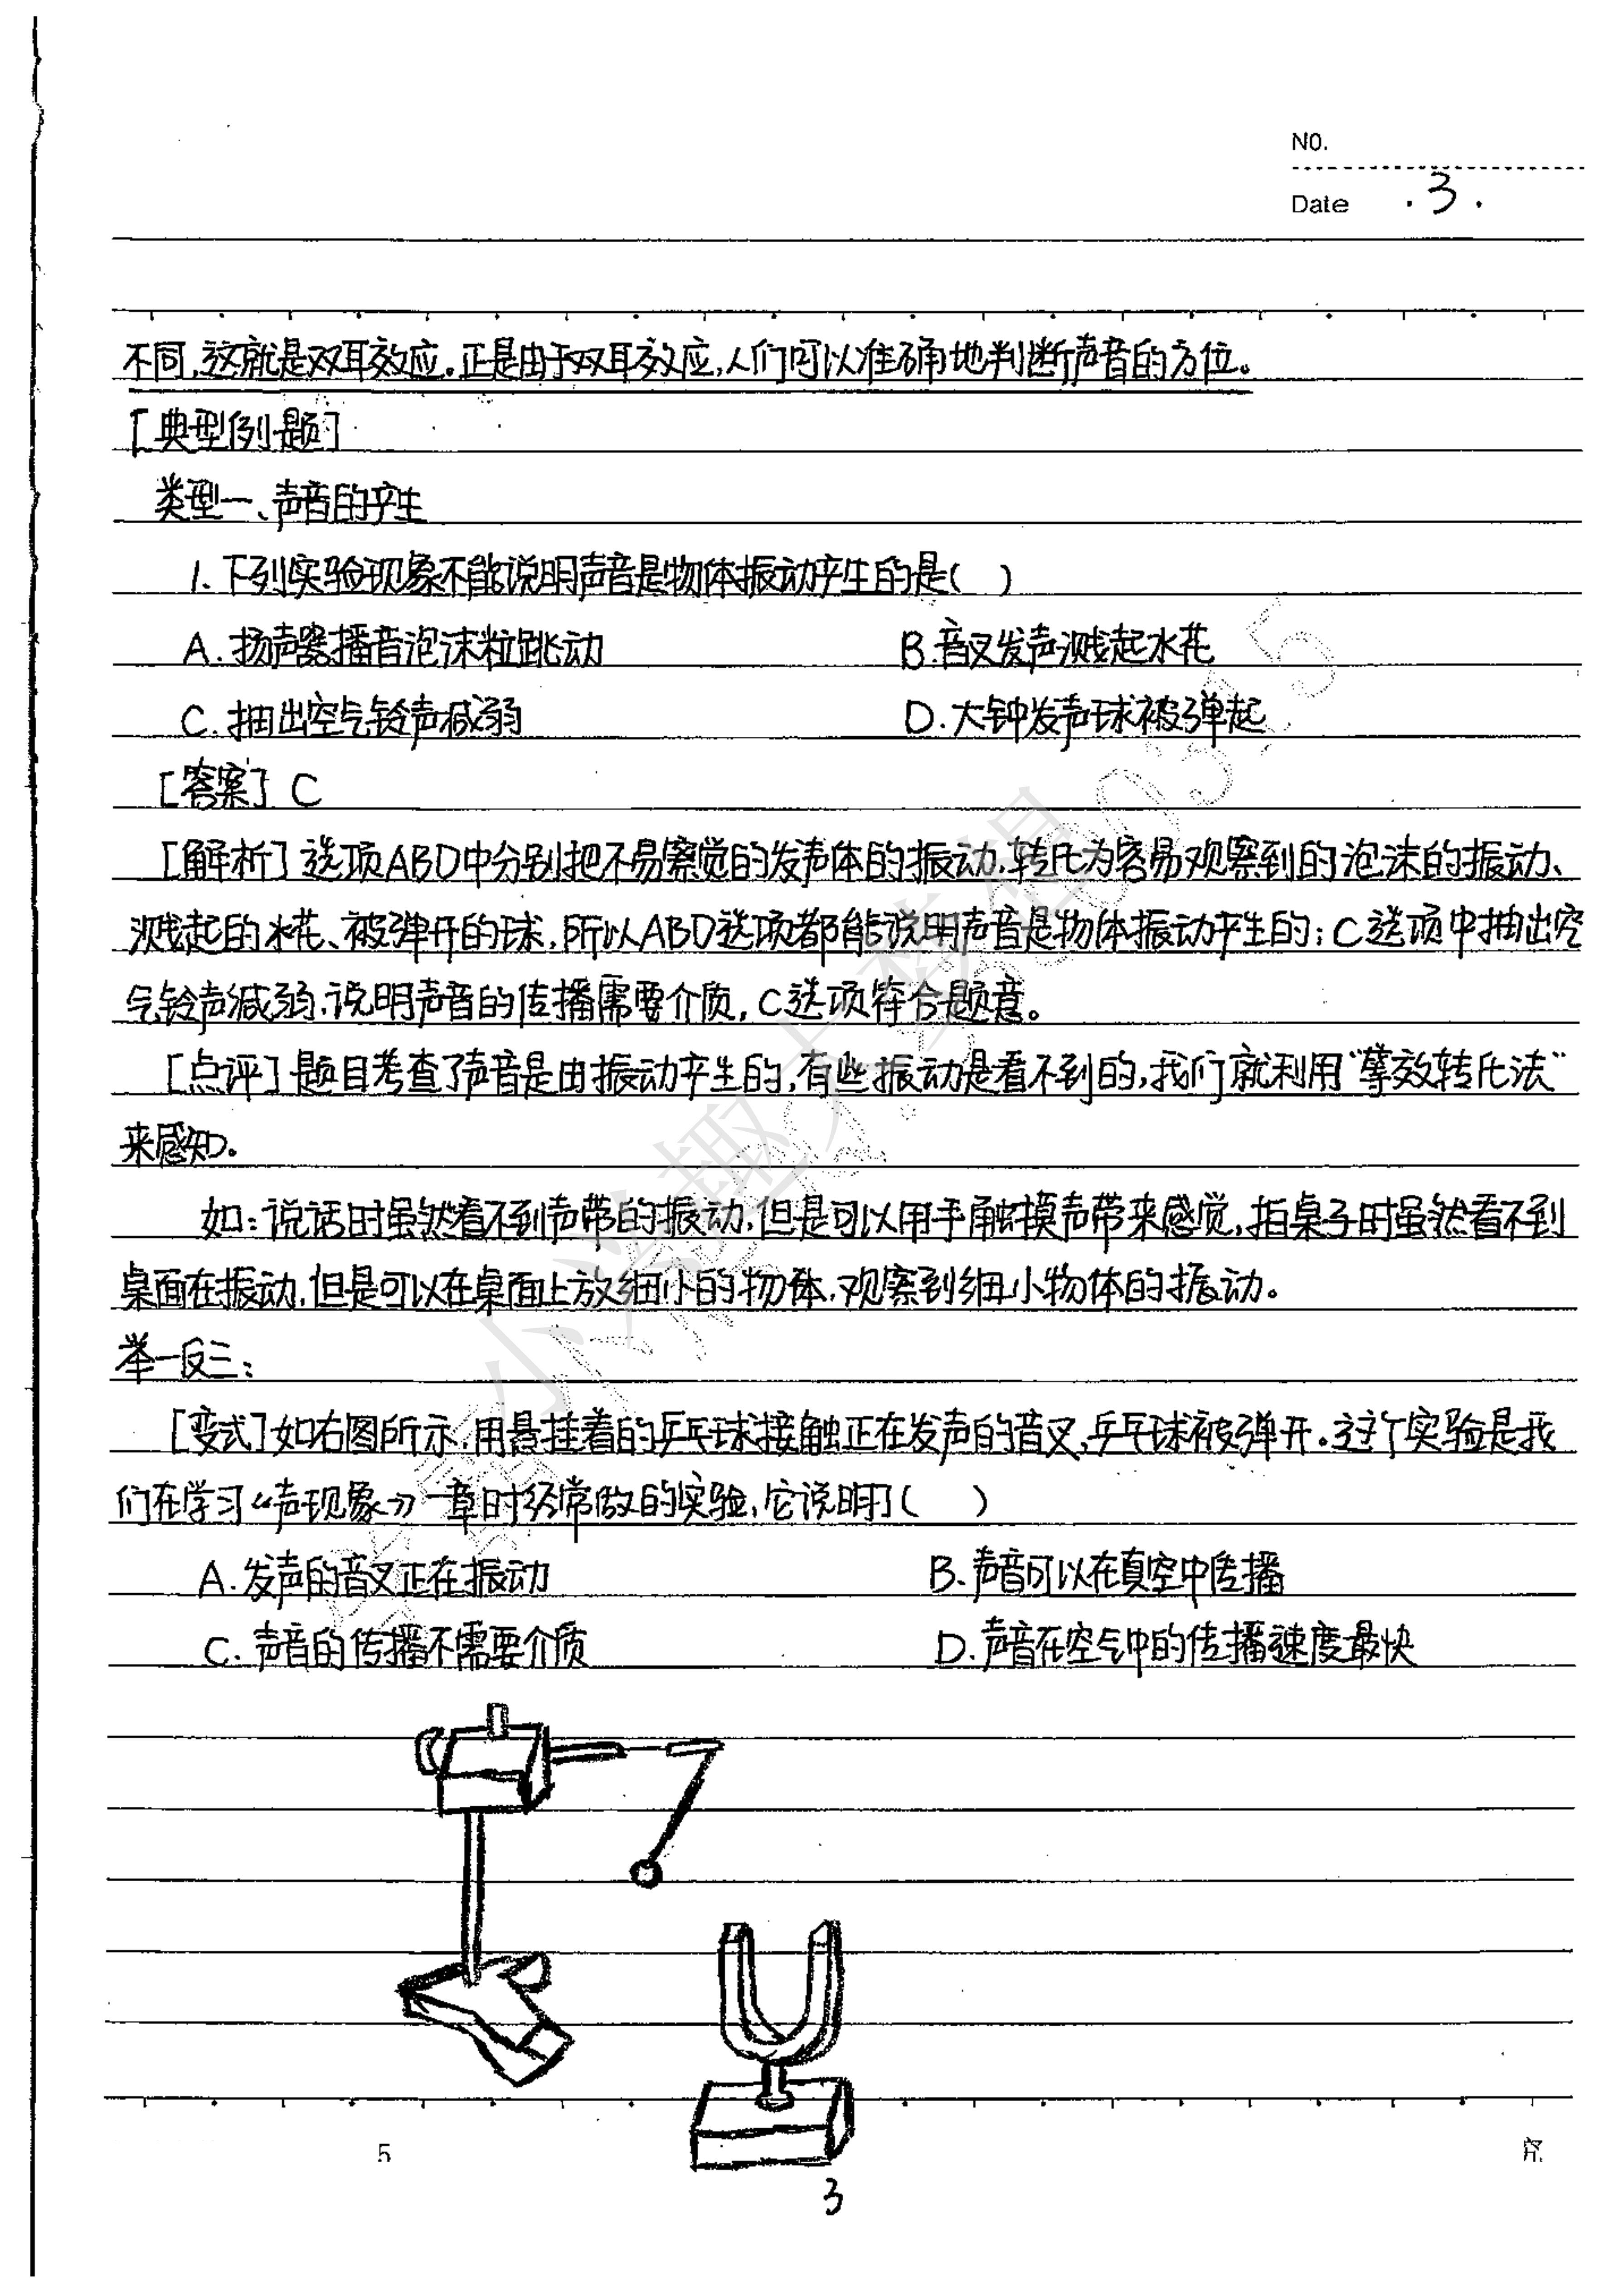 NO.
Date .3.
不同,这就是双耳效应。正是由于双耳效应,人们可以准确地判断声音的方位。
[典型例题]
类型一、声音的产生
1.下列实验现象不能说明声音是物体振动产生的是( )
A.扬声器播音泡沫粒跳动 B.音叉发声溅起水花
C.抽出空气铃声减弱 D.大钟发声球被弹起
[答案] C
[解析]选项ABD中分别把不易察觉的发声体的振动,转化为容易观察到的泡沫的振动、
溅起的水花、被弹开的球,所以ABD选项都能说明声音是物体振动产生的;C选项中抽出空
气铃声减弱,说明声音的传播需要介质,C选项符合题意。
[点评]题目考查了声音是由振动产生的,有些振动是看不到的,我们就利用“等效转化法”
来感知。
如:说话时虽然看不到声带的振动,但是可以用手触摸声带来感觉,拍桌子时虽然看不到
桌面在振动,但是可以在桌面上放细小的物体,观察到细小物体的振动。
举一反三:
[变式]如右图所示,用悬挂着的乒乓球接触正在发声的音叉,乒乓球被弹开。这个实验是我
们在学习《声现象》一章时经常做的实验,它说明了( )
A.发声的音叉正在振动 B.声音可以在真空中传播
C.声音的传播不需要介质 D.声音在空气中的传播速度最快
5
3